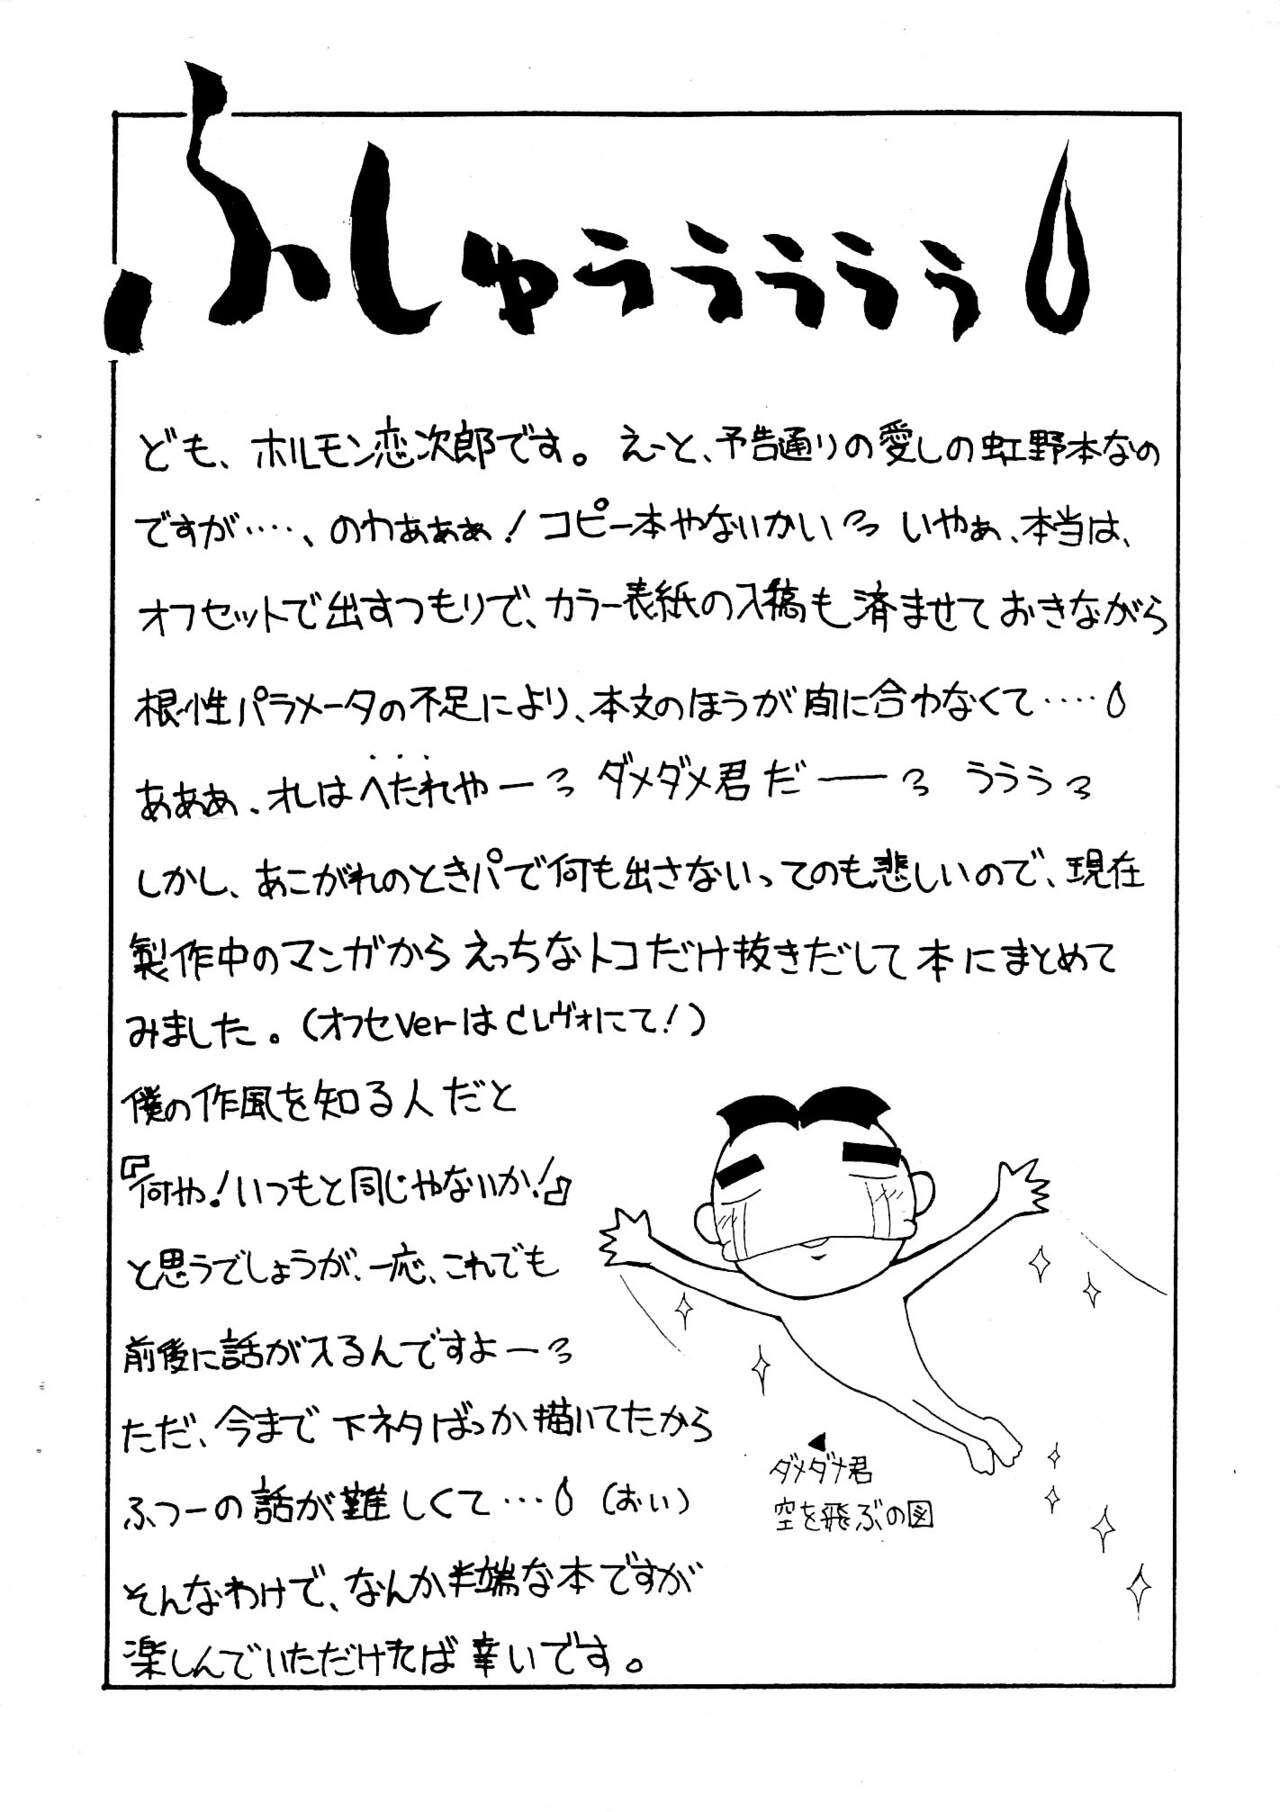 ふしゅうぅぅぅぅ
ども、ホルモン恋次郎です。えーと、予告通りの愛しの虹野本なの
ですが‥‥、のわあぁぁ！コピー本やないかいっ いやぁ、本当は、
オフセットで出すつもりで、カラー表紙の入稿も済ませておきながら
根性パラメータの不足により、本文のほうが間に合わなくて‥‥
あああ、オレはへたれやーっ ダメダメ君だーっ うううっ
しかし、あこがれのときパで何も出さないってのも悲しいので、現在
製作中のマンガからえっちなトコだけ抜きだして本にまとめて
みました。（オフセVerはCレヴォにて！）
僕の作風を知る人だと
『何や！いつもと同じゃないか！』
と思うでしょうが、一応、これでも
前後に話が入るんですよーっ
ただ、今まで下ネタばっか描いてたから
ふつーの話が難しくて…（おい）
そんなわけで、なんか半端な本ですが
楽しんでいただければ幸いです。
ダメダメ君
空を飛ぶの図